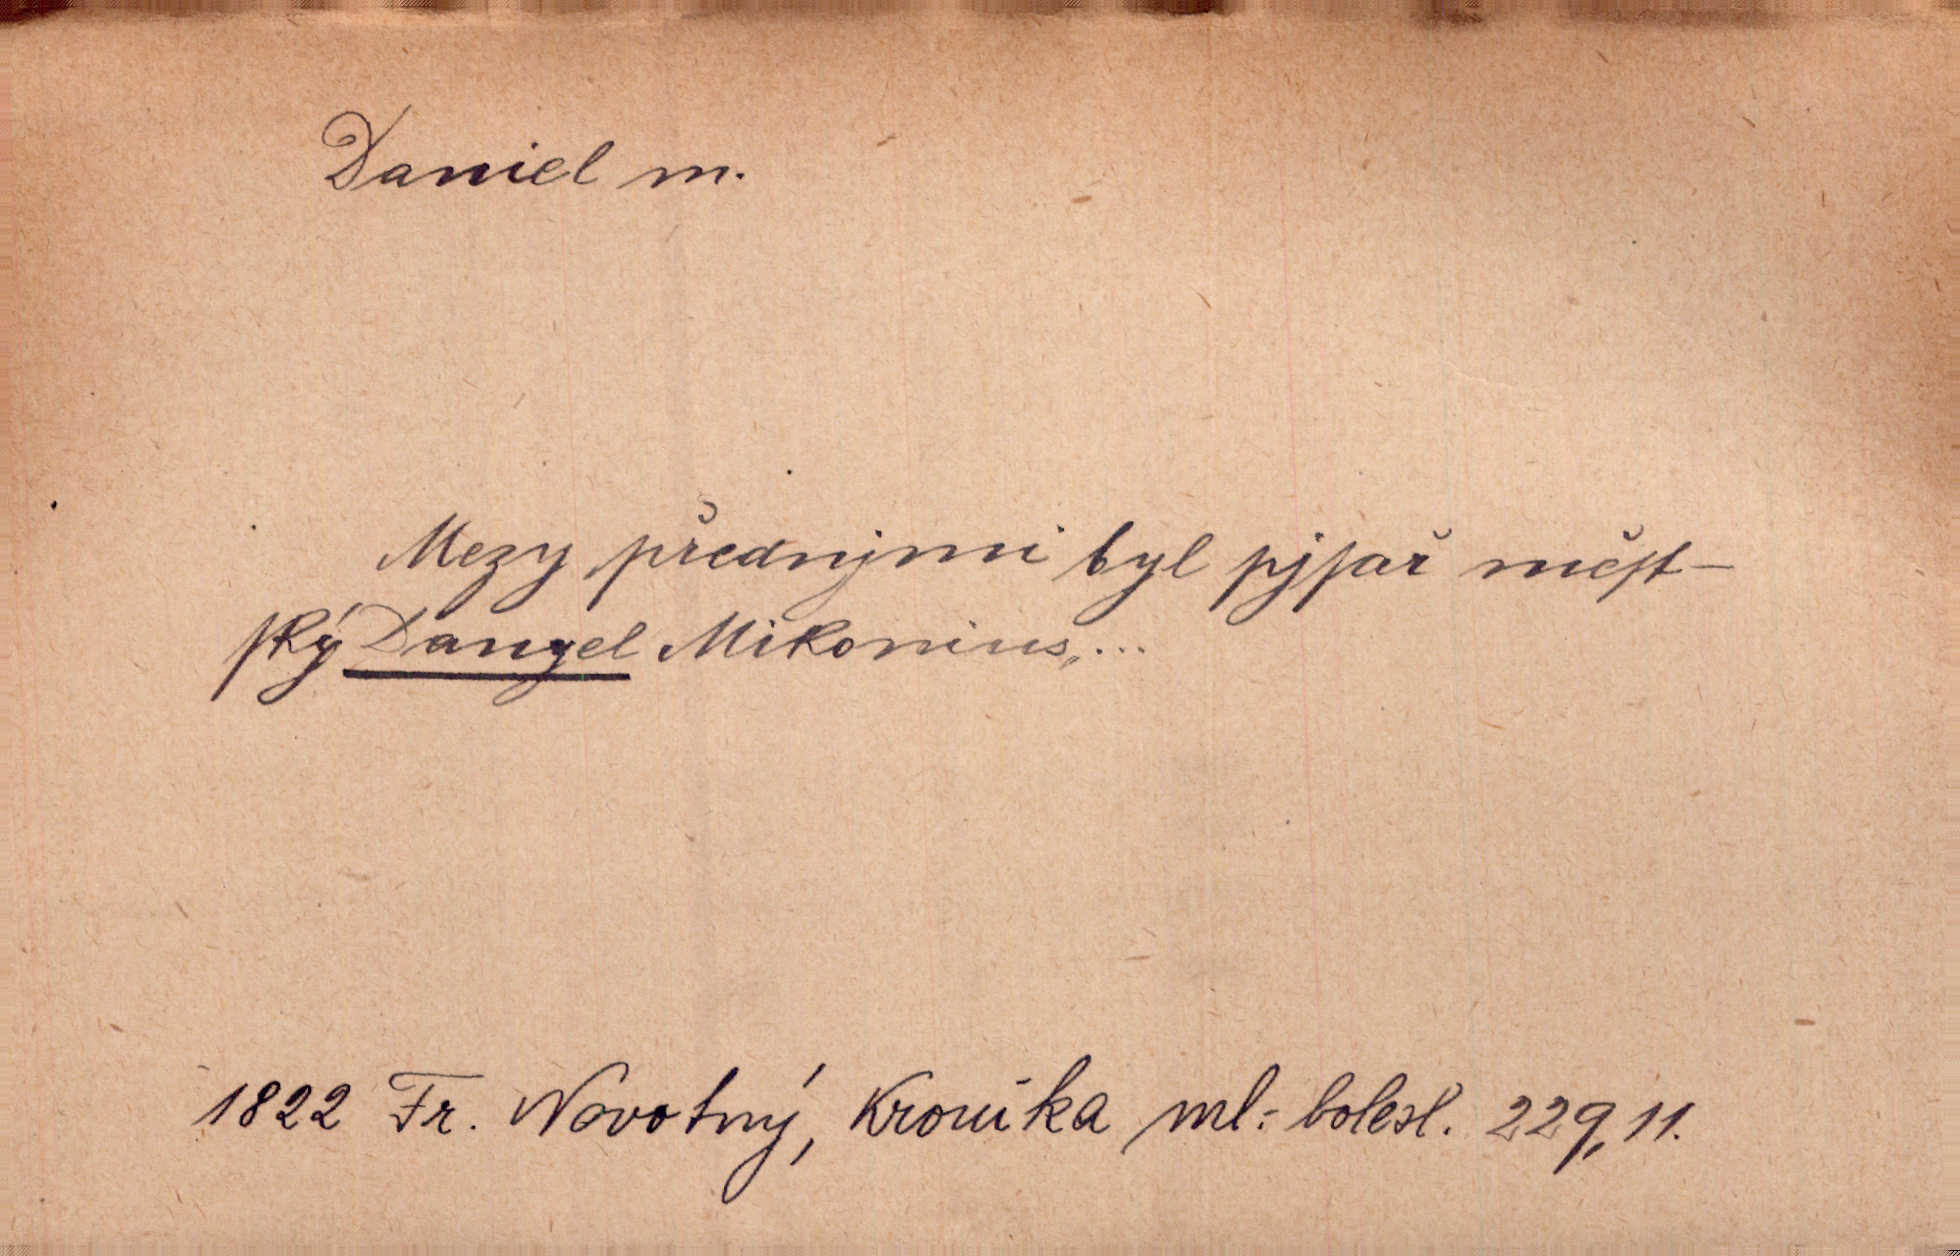 Daniel m.
Mezy přednjmi byl pjſař měſt-
ſký Danyel Mikonius,...
1822 Fr. Novotný, Kronika ml.-bolesl. 229, 11.